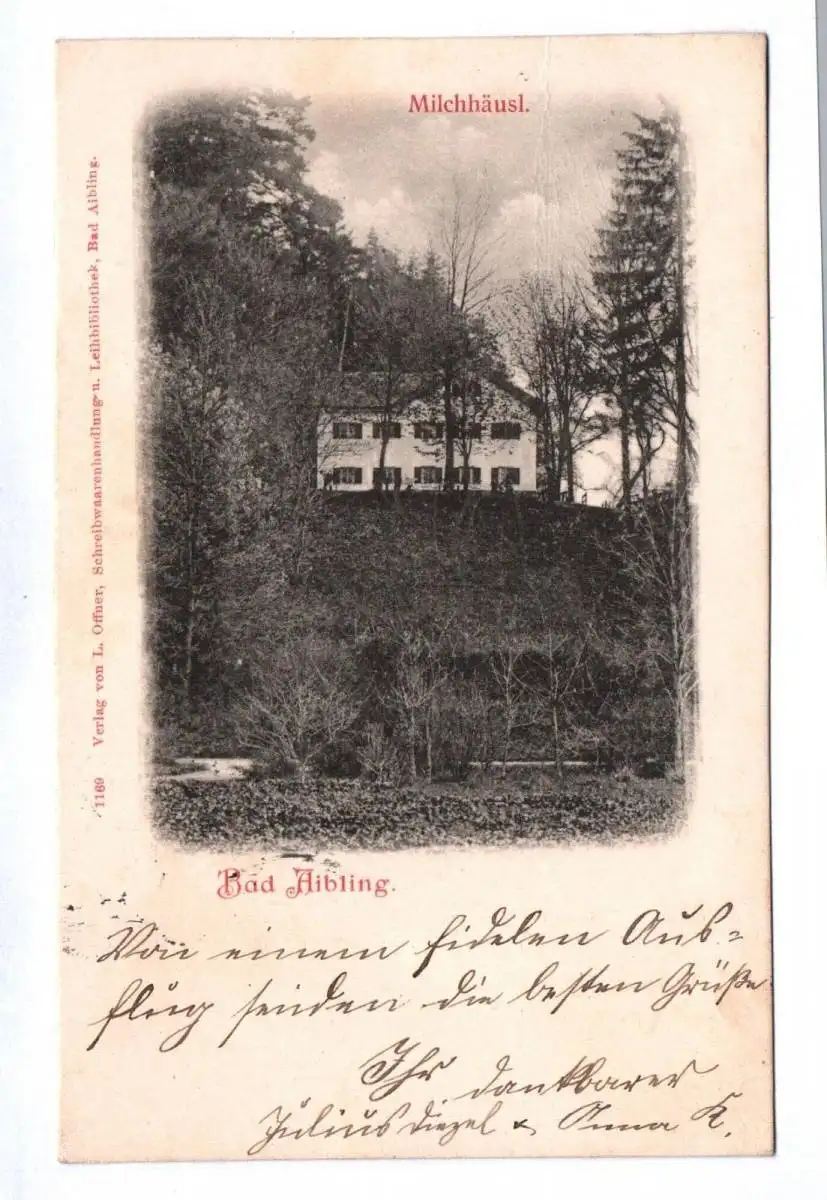 Milchhäusl.
1169 Verlag von L. Offner, Schreibwaarenhandlung u. Leihbibliothek, Bad Aibling.
Bad Aibling.
Von einem fidelen Aus=
flug senden die besten Grüße
Ihr dankbarer
Julius Diezel & Anna K.